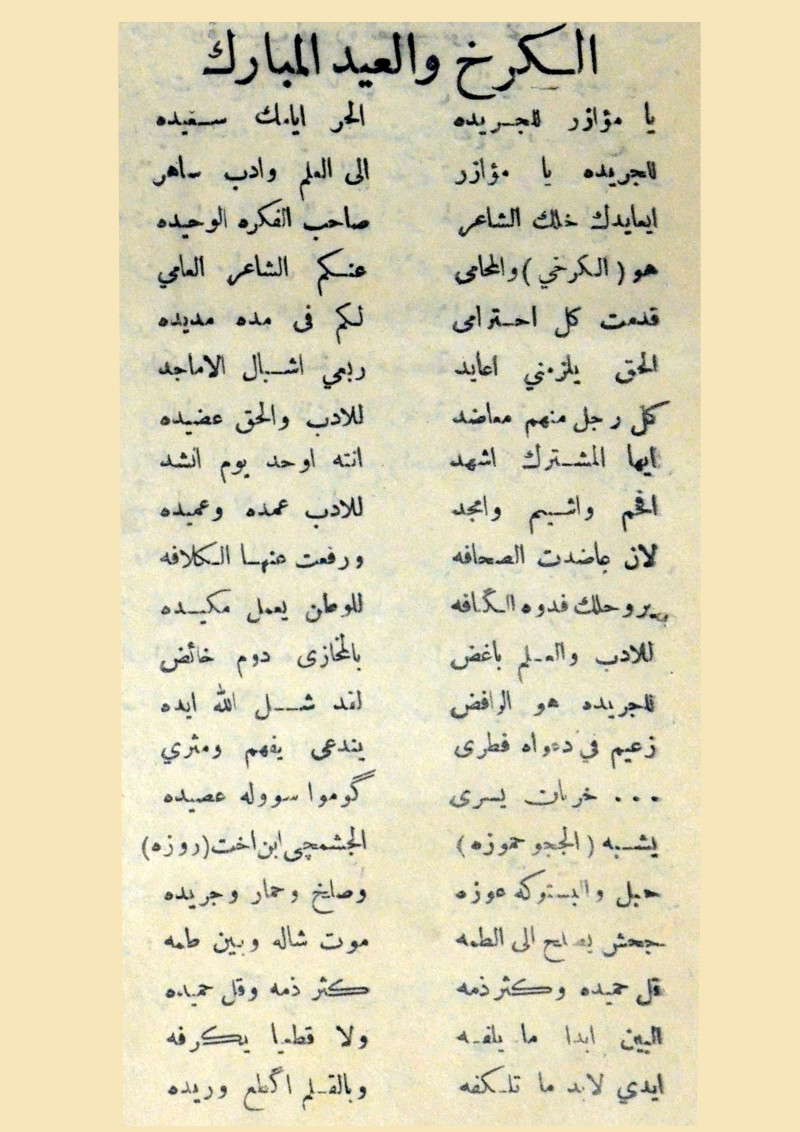 الكرخ والعيد المبارك
يا مؤازر للجريده الحر ايامك سعيده
للجريده يا مؤازر الى العلم وادب ساهر
ايعايدك خلك الشاعر صاحب الفكره الوحيده
هو ( الكرخي ) والمحامى عنكم الشاعر العامي
قدمت كل احترامى لكم فى مده مديده
الحق يلزمني اعايد ربعي اشبال الاماجد
كل رجل منهم معاضد للادب والحق عضيده
ايها المشترك اشهد انته اوحد يوم انشد
افخم واشيم وامجد للادب عمده وعميده
لان عاضدت الصحافه ورفعت عنها الكلافه
بروحلك فدوه الگافه للوطن يعمل مكيده
للادب والعلم باغض بالمخازى دوم خائض
للجريده هو الرافض لقد شل الله ايده
زعيم في دعواه فطرى يندعى يفهم ومثري
... خربان يسرى گوموا سووله عصيده
يشبه ( الججو حموزه ) الجشمچى ابن اخت (روزه)
حبل والبستوكه عوزه وصايخ وحمار وجريده
جحش يصلح الى الطمه موت شاله وبين طمه
قل حميده وكثر ذمه كثر ذمه وقل حميده
البين ابدا ما يلفه ولا قطعيا يكرفه
ايدي لابد ما تلكفه وبالقلم اگطع وريده